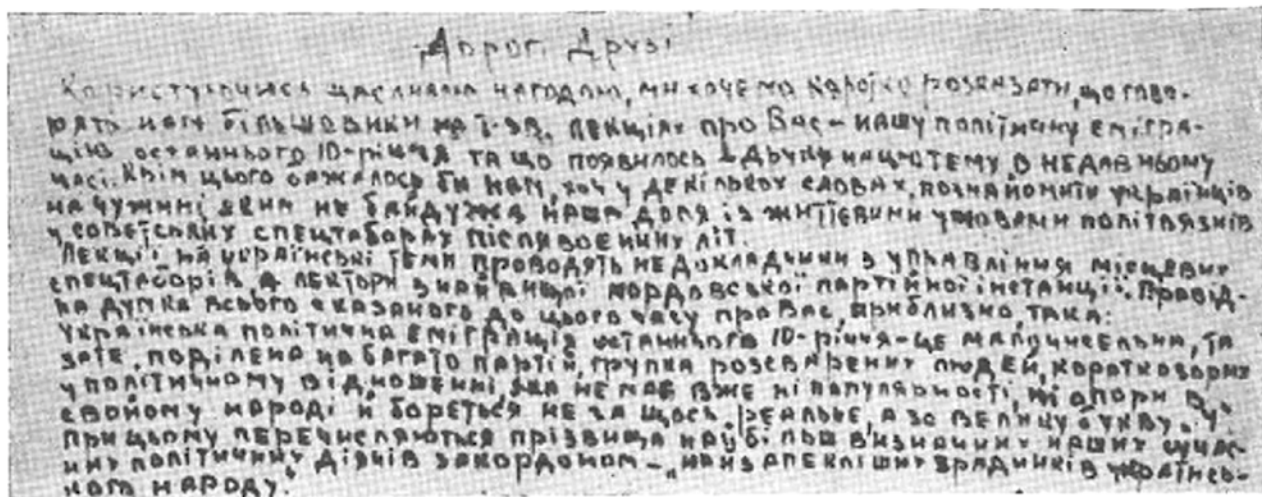 Дорог. Друзі
Користуючися щасливою нагодою, ми хочемо коротко розказати, що гово-
рять нам більшовики на т.зв. лекціях про Вас – нашу політичну емігра-
цію останнього 10-річчя та що появилось в друку на цю тему в недавньому
часі. Крім цього бажалось би нам, хоч у декількох словах, познайомити українців
на чужині яким не байдужа наша доля із життєвими умовами політвязнів
у совєтських спецтаборах післявоєнних літ.
Лекції на українські теми проводять не докладчики з управління місцевих
спецтаборів, а лектори з найвищої мордовської партійної інстанції. Провід-
на думка всього сказаного до цього часу про Вас, приблизно, така:
Українська політична еміграція останнього 10-річчя – це малочисельна, та
зате, поділена на багато партій, групка розсварених людей, короткозорих
у політичному відношенні, яка не має вже ні популярності, ні опори в
свойому народі й бореться не за щось реальне, а за велику букву „У".
При цьому перечисляються прізвища найбільш визначних наших сучас-
них політичних діячів закордоном – „найзапекліших зрадників українсь-
кого народу."